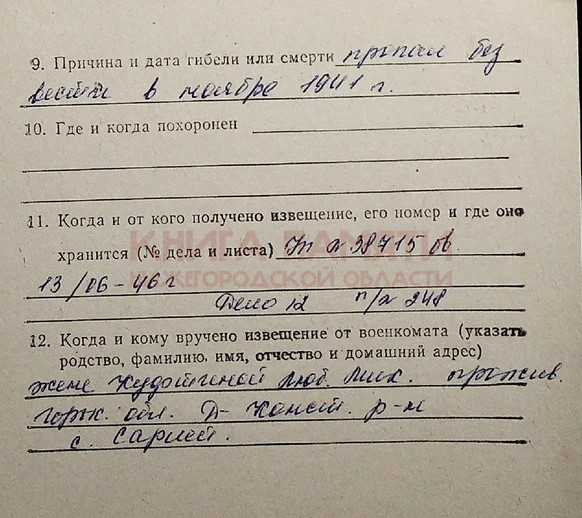 9. Причина и дата гибели или смерти пропал без
вести в ноябре 1941 г.
10. Где и когда похоронен
11. Когда и от кого получено извещение, его номер и где оно
хранится (№ дела и листа) № 38715 ов
13/06-46 г
Дело 12 п/х 248
12. Когда и кому вручено извещение от военкомата (указать
родство, фамилию, имя, отчество и домашний адрес)
жене Люб. Мих. прожив.
Горьк. обл. Д-Конст. р-н
с. Сарлей.
КНИГА ПАМЯТИ
НИЖЕГОРОДСКОЙ ОБЛАСТИ